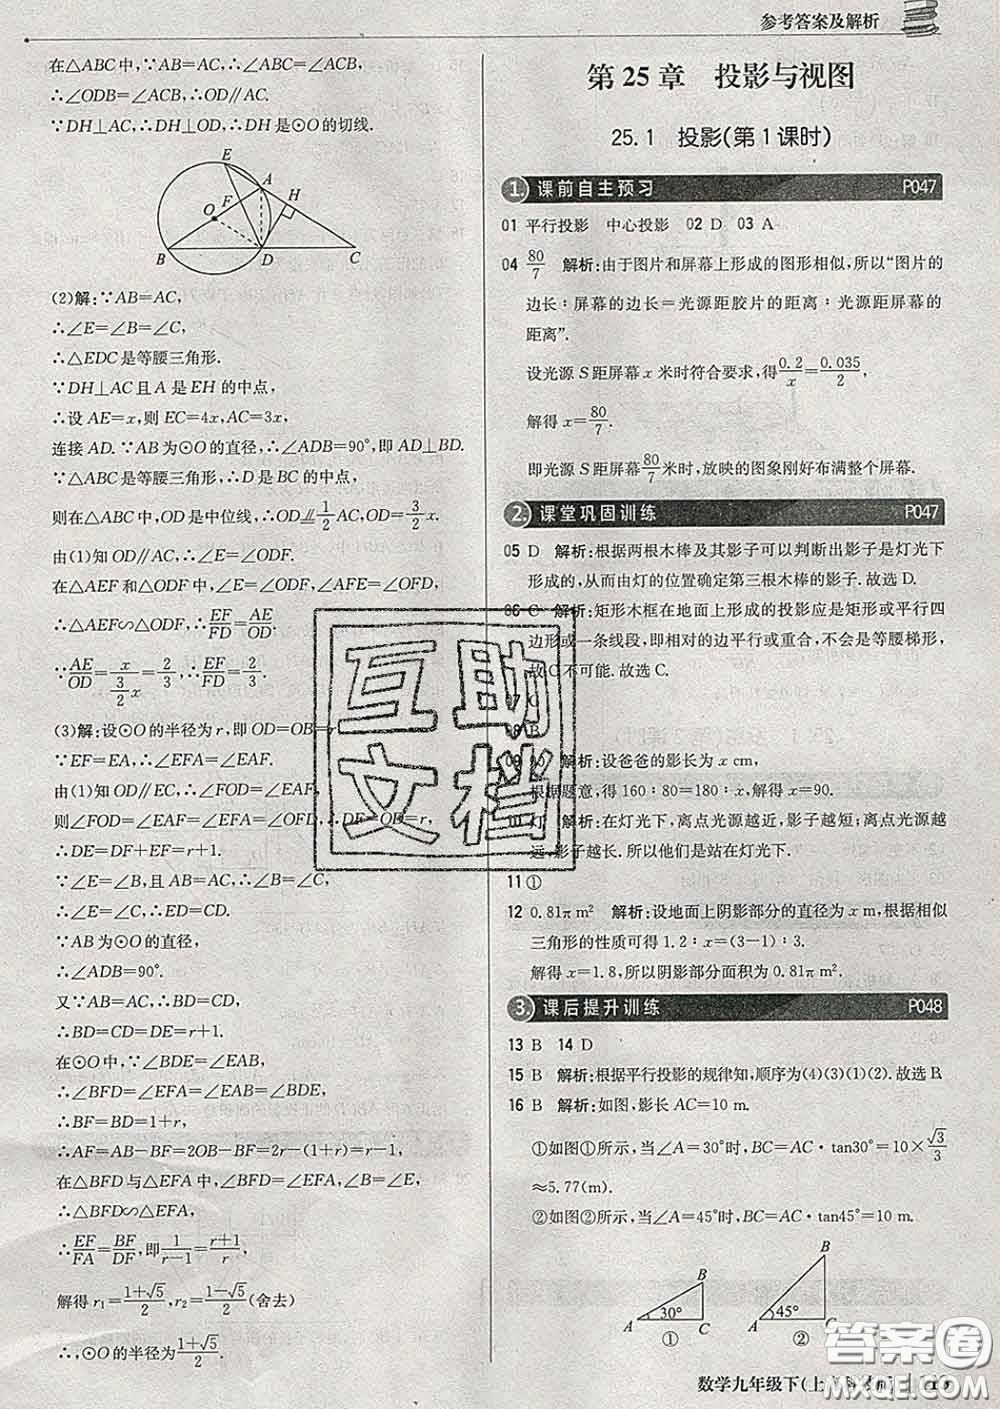 参考答案及解析
在△ABC中,∵AB=AC,∴∠ABC=∠ACB,
∴∠ODB=∠ACB,∴OD∥AC.
∵DH⊥AC,∴DH⊥OD,∴DH是⊙O的切线.
E
A
H
F
O
B
D
C
(2)解:∵AB=AC,
∴∠E=∠B=∠C,
∴△EDC是等腰三角形.
∵DH⊥AC且A是EH的中点,
∴设AE=x,则EC=4x,AC=3x,
连接AD.∵AB为⊙O的直径,∴∠ADB=90°,即AD⊥BD.
∵△ABC是等腰三角形,∴D是BC的中点,
则在△ABC中,OD是中位线,∴OD∥=1/2AC,OD=3/2x.
由(1)知OD∥AC,∴∠E=∠ODF.
在△AEF和△ODF中,∠E=∠ODF,∠AFE=∠OFD,
∴△AEF∽△ODF,∴EF/FD=AE/OD.
∵AE/OD=x/(3/2x)=2/3,∴EF/FD=2/3.
(3)解:设⊙O的半径为r,即OD=OB=r.
∵EF=EA,∴∠EFA=∠EAF.
由(1)知OD∥EC,∴∠FOD=∠EAF,
则∠FOD=∠EAF=∠EFA=∠OFD,∴DF=OD=r,
∴DE=DF+EF=r+1.
∵∠E=∠B,且AB=AC,∴∠B=∠C,
∴∠E=∠C,∴ED=CD.
∵AB为⊙O的直径,
∴∠ADB=90°.
又∵AB=AC,∴BD=CD,
∴BD=CD=DE=r+1.
在⊙O中,∵∠BDE=∠EAB,
∴∠BFD=∠EFA=∠EAB=∠BDE,
∴BF=BD=1+r,
∴AF=AB-BF=2OB-BF=2r-(1+r)=r-1.
在△BFD与△EFA中,∠BFD=∠EFA,∠B=∠E,
∴△BFD∽△EFA,
∴EF/FA=BF/DF,即1/(r-1)=(r+1)/r,
解得r₁=(1+√5)/2,r₂=(1-√5)/2(舍去)
∴,⊙O的半径为(1+√5)/2.
第25章 投影与视图
25.1 投影(第1课时)
1. 课前自主预习 P047
01 平行投影 中心投影 02 D 03 A
04 80/7 解析:由于图片和屏幕上形成的图形相似,所以“图片的
边长∶屏幕的边长=光源距胶片的距离∶光源距屏幕的
距离”.
设光源S距屏幕x米时符合要求,得0.2/x=0.035/2,
解得x=80/7.
即光源S距屏幕80/7米时,放映的图象刚好布满整个屏幕.
2. 课堂巩固训练 P047
05 D 解析:根据两根木棒及其影子可以判断出影子是灯光下
形成的,从而由灯的位置确定第三根木棒的影子.故选D.
06 C 解析:矩形木框在地面上形成的投影应是矩形或平行四
边形或一条线段,即相对的边平行或重合,不会是等腰梯形,
故C不可能.故选C.
07 C
08 B
09 90 解析:设爸爸的影长为x cm,
根据题意,得160∶80=180∶x,解得x=90.
10 灯 解析:在灯光下,离点光源越近,影子越短;离点光源越
远,影子越长.所以他们是站在灯光下.
11 ①
12 0.81π m² 解析:设地面上阴影部分的直径为x m,根据相似
三角形的性质可得1.2∶x=(3-1)∶3.
解得x=1.8,所以阴影部分面积为0.81π m².
3. 课后提升训练 P048
13 B 14 D
15 B 解析:根据平行投影的规律知,顺序为(4)(3)(1)(2).故选B
16 B 解析:如图,影长AC=10 m.
①如图①所示,当∠A=30°时,BC=AC·tan30°=10×√3/3
≈5.77(m).
②如图②所示,当∠A=45°时,BC=AC·tan45°=10 m.
B
30°
A
C
①
B
45°
A
C
②
互助
文档
答案圈
数学九年级下(上